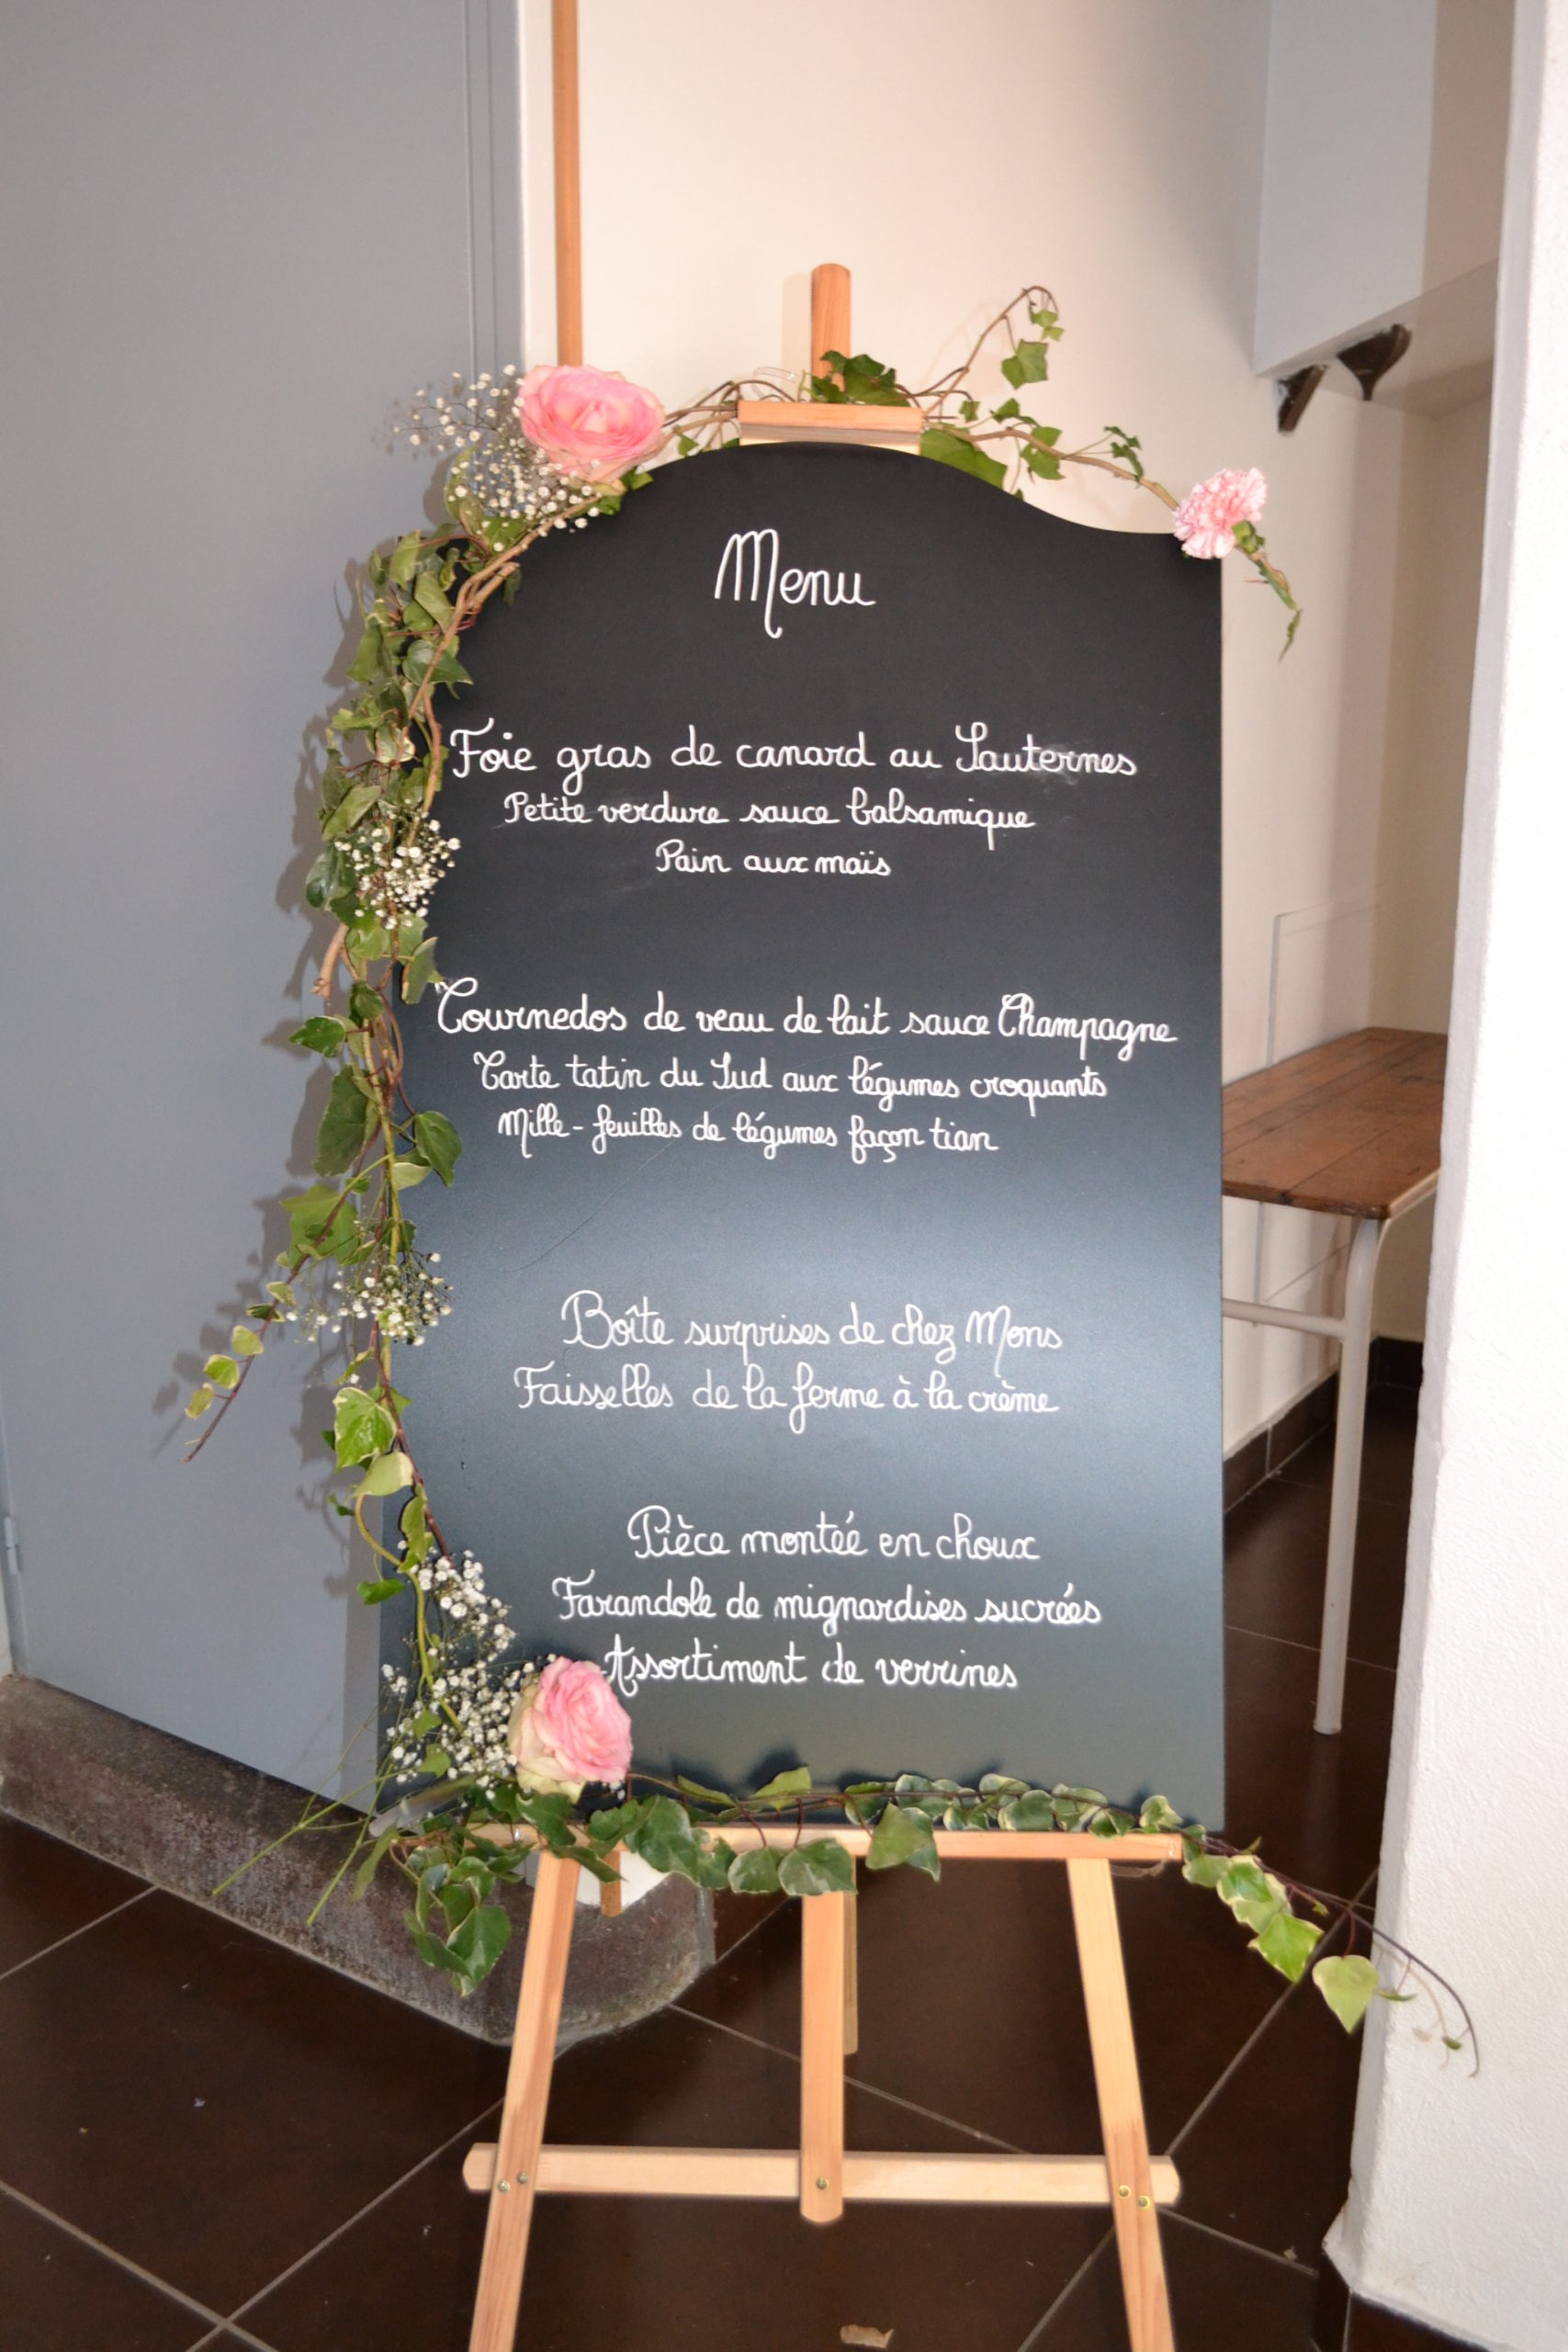 Menu
Foie gras de canard au Sauternes
Petite verdure sauce balsamique
Pain aux maïs
Tournedos de veau de lait sauce Champagne
Tarte tatin du Sud aux légumes croquants
Mille-feuilles de légumes façon tian
Boîte surprises de chez Mons
Faisselles de la ferme à la crème
Pièce montéé en choux
Farandole de mignardises sucrées
Assortiment de verrines